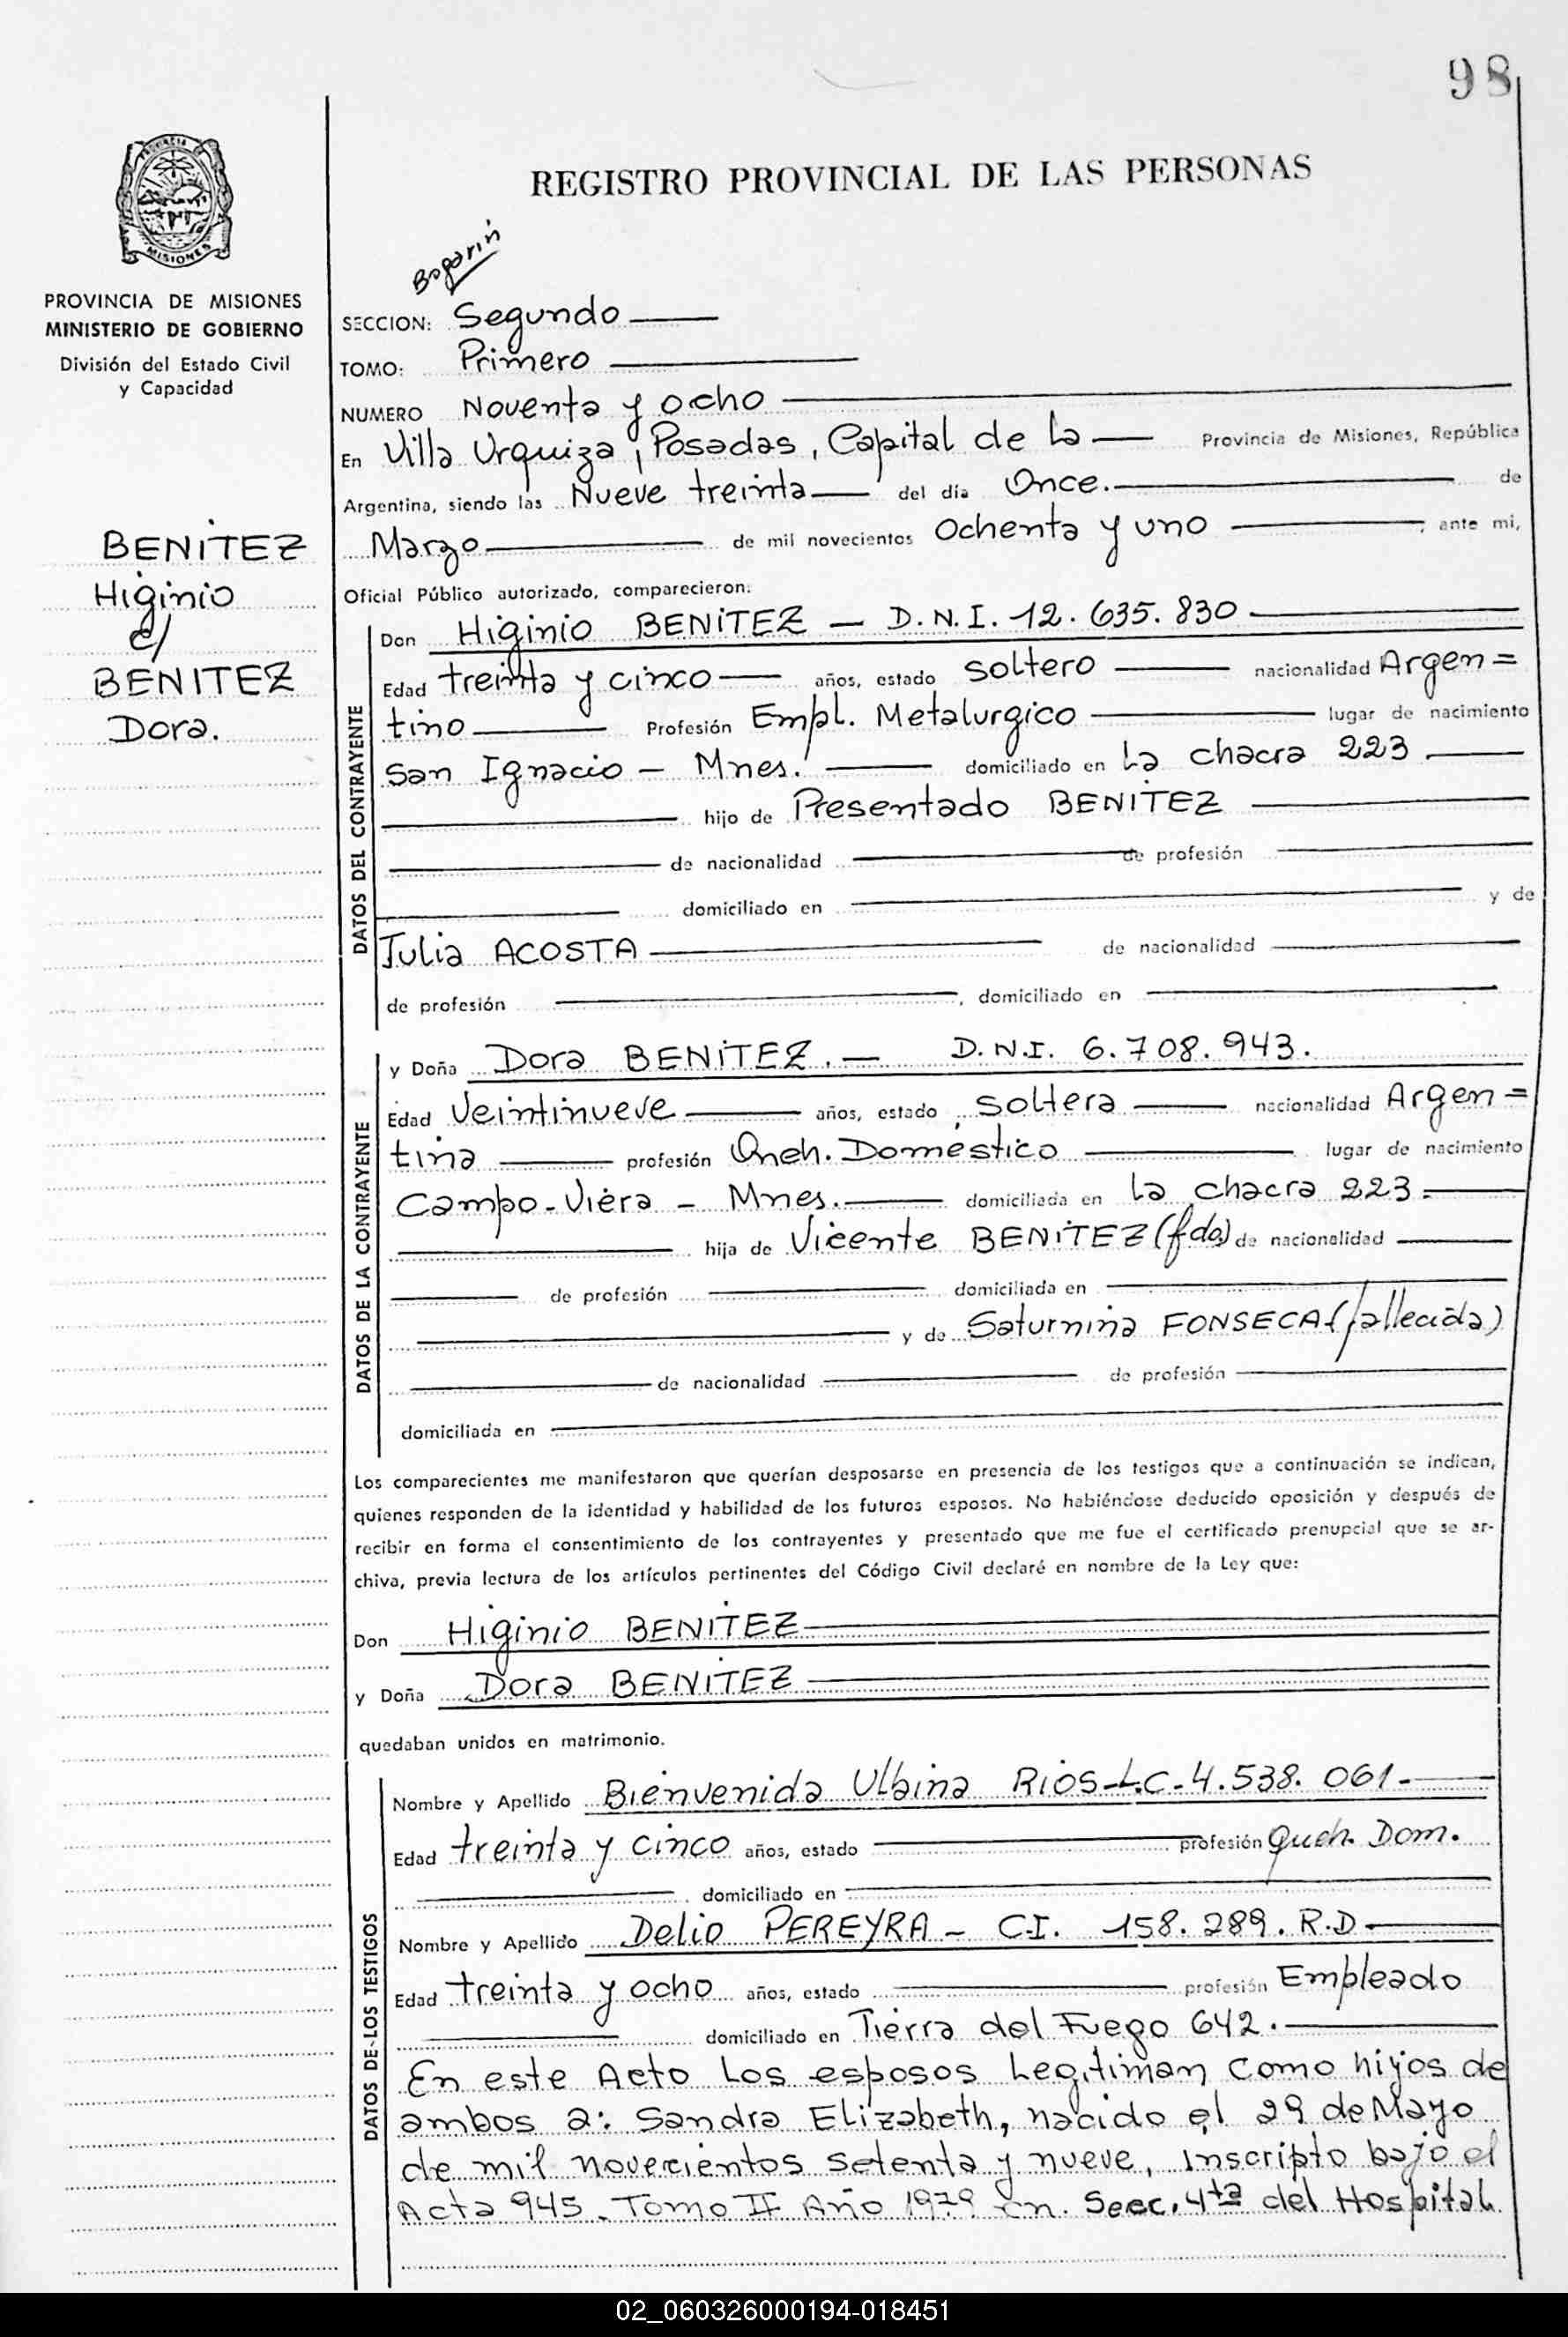 98
PROVINCIA DE
MISIONES
PROVINCIA DE MISIONES
MINISTERIO DE GOBIERNO
División del Estado Civil
y Capacidad
BENITEZ
Higinio
c/
BENITEZ
Dora.
REGISTRO PROVINCIAL DE LAS PERSONAS
Bogarin
SECCION: Segundo
TOMO: Primero
NUMERO Noventa y ocho
En Villa Urquiza, Posadas, Capital de la — Provincia de Misiones, República
Argentina, siendo las Nueve treinta — del día Once. — de
Marzo — de mil novecientos Ochenta y uno — ; ante mi,
Oficial Público autorizado, comparecieron:
DATOS DEL CONTRAYENTE
Don Higinio BENITEZ — D.N.I. 12.635.830 —
Edad treinta y cinco — años, estado soltero — nacionalidad Argen=
tino — Profesión Empl. Metalurgico — lugar de nacimiento
San Ignacio — Mnes. — domiciliado en La chacra 223. —
— hijo de Presentado BENITEZ —
— de nacionalidad — de profesión —
— domiciliado en — y de
Julia ACOSTA — de nacionalidad —
de profesión —, domiciliado en —
DATOS DE LA CONTRAYENTE
y Doña Dora BENITEZ. — D.N.I. 6.708.943.
Edad Veintinueve — años, estado soltera — nacionalidad Argen=
tina — profesión Queh. Doméstico — lugar de nacimiento
Campo-Viera — Mnes. — domiciliada en La chacra 223. —
— hija de Vicente BENITEZ (fdo) de nacionalidad —
— de profesión — domiciliada en —
— y de Saturnina FONSECA (fallecida)
— de nacionalidad — de profesión —
domiciliada en —
Los comparecientes me manifestaron que querían desposarse en presencia de los testigos que a continuación se indican,
quienes responden de la identidad y habilidad de los futuros esposos. No habiéndose deducido oposición y después de
recibir en forma el consentimiento de los contrayentes y presentado que me fue el certificado prenupcial que se ar-
chiva, previa lectura de los artículos pertinentes del Código Civil declaré en nombre de la Ley que:
Don Higinio BENITEZ —
y Doña Dora BENITEZ —
quedaban unidos en matrimonio.
DATOS DE LOS TESTIGOS
Nombre y Apellido Bienvenida Ulbina RIOS-L.C-4.538.061. —
Edad treinta y cinco años, estado — profesión Queh. Dom.
— domiciliado en —
Nombre y Apellido Delio PEREYRA — C.I. 158.289. R.D —
Edad treinta y ocho años, estado — profesión Empleado
— domiciliado en Tierra del Fuego 642. —
En este Acto Los esposos Legitiman como hijos de
ambos a: Sandra Elizabeth, nacido el 29 de Mayo
de mil novecientos setenta y nueve, inscripto bajo el
Acta 945. Tomo II Año 1979 en Secc. 4ta del Hospital.
02_060326000194-018451